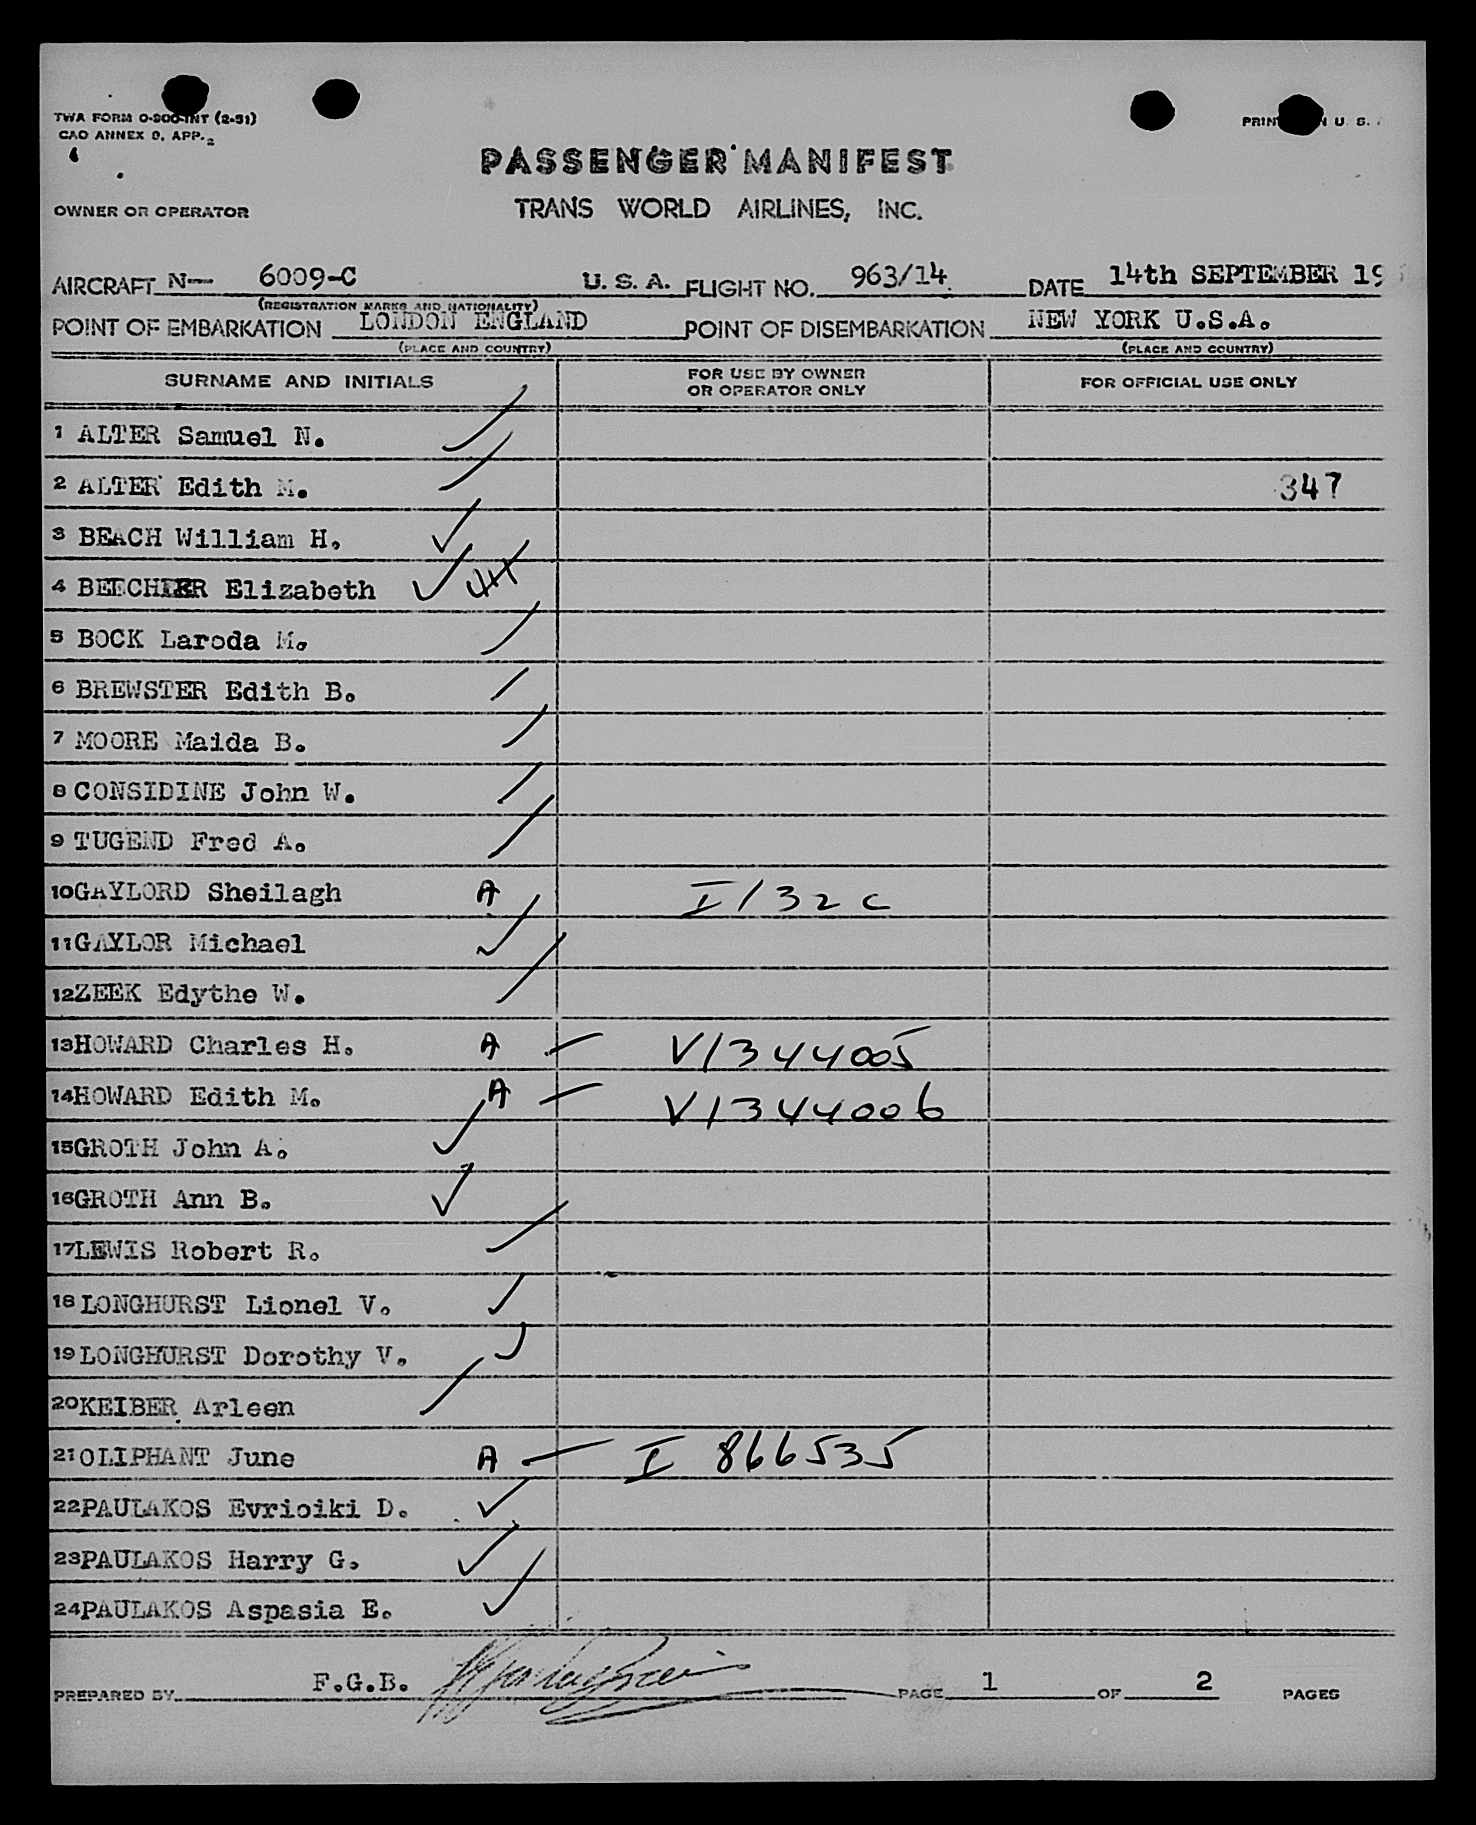 TWA FORM O-900-INT (2-51)
CAO ANNEX 9, APP. 2
PASSENGER MANIFEST
OWNER OR OPERATOR TRANS WORLD AIRLINES, INC.
AIRCRAFT N— 6009-C U. S. A. FLIGHT NO. 963/14 DATE 14th SEPTEMBER 19
(REGISTRATION MARKS AND NATIONALITY)
POINT OF EMBARKATION LONDON ENGLAND POINT OF DISEMBARKATION NEW YORK U.S.A.
(PLACE AND COUNTRY) (PLACE AND COUNTRY)
SURNAME AND INITIALS FOR USE BY OWNER OR OPERATOR ONLY FOR OFFICIAL USE ONLY
1 ALTER Samuel N.
2 ALTER Edith M. 347
3 BEACH William H.
4 BEECHER Elizabeth
5 BOCK Laroda M.
6 BREWSTER Edith B.
7 MOORE Maida B.
8 CONSIDINE John W.
9 TUGEND Fred A.
10 GAYLORD Sheilagh A I132c
11 GAYLOR Michael
12 ZEEK Edythe W.
13 HOWARD Charles H. A V1344005
14 HOWARD Edith M. A V1344006
15 GROTH John A.
16 GROTH Ann B.
17 LEWIS Robert R.
18 LONGHURST Lionel V.
19 LONGHURST Dorothy V.
20 KEIBER Arleen
21 OLIPHANT June A I 866535
22 PAULAKOS Evrioiki D.
23 PAULAKOS Harry G.
24 PAULAKOS Aspasia E.
PREPARED BY F.G.B. PAGE 1 OF 2 PAGES